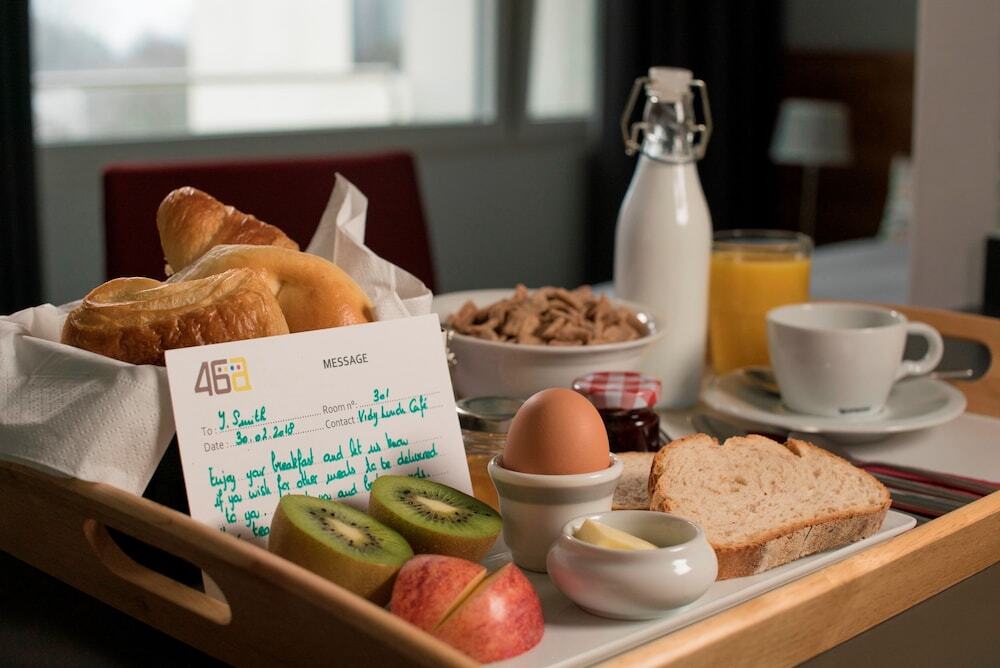 46a
MESSAGE
To : J. Smith Room nº : 301
Date : 30.02.2018 Contact Vidy Lunch Café
Enjoy your breakfast and let us know
if you wish for other meals to be delivered
to you. you and